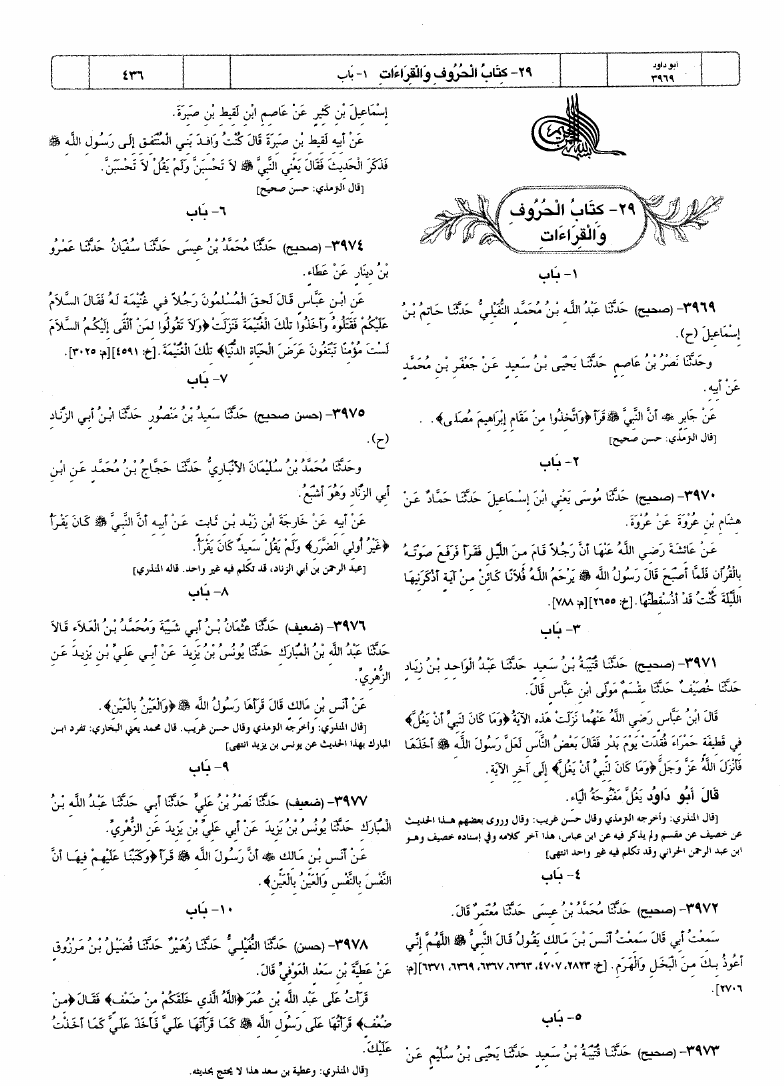 ابو داود
٣٩٦٩
٢٩- كتَابُ الْحُرُوفِ وَالْقِرَاءَاتِ ١- بَاب
٤٣٦
٢٩- كتَابُ الْحُرُوفِ
وَالْقِرَاءَاتِ
١- بَاب
٣٩٦٩- (صحيح) حَدَّثَنَا عَبْدُ اللَّه بْنُ مُحَمَّدٍ النُّفَيْلِيُّ حَدَّثَنَا حَاتِمُ بْنُ
إِسْمَاعِيلَ (ح).
وحَدَّثَنَا نَصْرُ بْنُ عَاصِمٍ حَدَّثَنَا يَحْيَى بْنُ سَعِيدٍ عَنْ جَعْفَرِ بْنِ مُحَمَّدٍ
عَنْ أَبِيهِ.
عَنْ جَابِرٍ ﷺ أَنَّ النَّبِيَّ ﷺ قَرَأَ ﴿وَاتَّخِذُوا مِنْ مَقَامِ إِبْرَاهِيمَ مُصَلَّى﴾.
[قال الترمذي: حسن صحيح]
٢- بَاب
٣٩٧٠- (صحيح) حَدَّثَنَا مُوسَى يَعْنِي ابْنَ إِسْمَاعِيلَ حَدَّثَنَا حَمَّادٌ عَنْ
هِشَامِ بْنِ عُرْوَةَ عَنْ عُرْوَةَ.
عَنْ عَائِشَةَ رَضِيَ اللَّهُ عَنْهَا أَنَّ رَجُلاً قَامَ مِنَ اللَّيْلِ فَقَرَأَ فَرَفَعَ صَوْتَهُ
بِالْقُرْآنِ فَلَمَّا أَصْبَحَ قَالَ رَسُولُ اللَّه ﷺ يَرْحَمُ اللَّهُ فُلاَنًا كَائِنْ مِنْ آيَةٍ أَذْكَرَنِيهَا
اللَّيْلَةَ كُنْتُ قَدْ أُسْقِطْتُهَا. [خ: ٢٦٥٥][م: ٧٨٨].
٣- بَاب
٣٩٧١- (صحيح) حَدَّثَنَا قُتَيْبَةُ بْنُ سَعِيدٍ حَدَّثَنَا عَبْدُ الْوَاحِدِ بْنُ زِيَادٍ
حَدَّثَنَا خُصَيْفٌ حَدَّثَنَا مِقْسَمٌ مَوْلَى ابْنِ عَبَّاسٍ قَالَ.
قَالَ ابْنُ عَبَّاسٍ رَضِيَ اللَّهُ عَنْهُمَا نَزَلَتْ هَذِهِ الآيَةُ ﴿وَمَا كَانَ لِنَبِيٍّ أَنْ يَغُلَّ﴾
فِي قَطِيفَةٍ حَمْرَاءَ فُقِدَتْ يَوْمَ بَدْرٍ فَقَالَ بَعْضُ النَّاسِ لَعَلَّ رَسُولَ اللَّه ﷺ أَخَذَهَا
فَأَنْزَلَ اللَّهُ عَزَّ وَجَلَّ ﴿وَمَا كَانَ لِنَبِيٍّ أَنْ يَغُلَّ﴾ إِلَى آخِرِ الآيَةِ.
قَالَ أَبُو دَاوُد يَغُلَّ مَفْتُوحَةُ الْيَاءِ.
[قال المنذري: وأخرجه الترمذي وقال حسن غريب: وقال وروى بعضهم هذا الحديث
عن خصيف عن مقسم ولم يذكر فيه عن ابن عباس، هذا آخر كلامه وفي إسناده خصيف وهو
ابن عبد الرحمن الحراني وقد تكلم فيه غير واحد انتهى]
٤- بَاب
٣٩٧٢- (صحيح) حَدَّثَنَا مُحَمَّدُ بْنُ عِيسَى حَدَّثَنَا مُعْتَمِرٌ قَالَ.
سَمِعْتُ أَبِي قَالَ سَمِعْتُ أَنَسَ بْنَ مَالِكٍ يَقُولُ قَالَ النَّبِيُّ ﷺ اللَّهُمَّ إِنِّي
أَعُوذُ بِكَ مِنَ الْبَخَلِ وَالْهَرَمِ. [خ: ٢٨٢٣، ٤٧٠٧، ٦٣٦٣، ٦٣٦٧، ٦٣٦٩، ٦٣٧١][م:
٢٧٠٦].
٥- بَاب
٣٩٧٣- (صحيح) حَدَّثَنَا قُتَيْبَةُ بْنُ سَعِيدٍ حَدَّثَنَا يَحْيَى بْنُ سُلَيْمٍ عَنْ
إِسْمَاعِيلَ بْنِ كَثِيرٍ عَنْ عَاصِمِ ابْنِ لَقِيطِ بْنِ صَبِرَةَ.
عَنْ أَبِيهِ لَقِيطِ بْنِ صَبِرَةَ قَالَ كُنْتُ وَافِدَ بَنِي الْمُنْتَفِقِ إِلَى رَسُولِ اللَّه ﷺ
فَذَكَرَ الْحَدِيثَ فَقَالَ يَعْنِي النَّبِيَّ ﷺ لاَ تَحْسِبَنَّ وَلَمْ يَقُلْ لاَ تَحْسَبَنَّ.
[قال الترمذي: حسن صحيح]
٦- بَاب
٣٩٧٤- (صحيح) حَدَّثَنَا مُحَمَّدُ بْنُ عِيسَى حَدَّثَنَا سُفْيَانُ حَدَّثَنَا عَمْرُو
بْنُ دِينَارٍ عَنْ عَطَاءٍ.
عَنِ ابْنِ عَبَّاسٍ قَالَ لَحِقَ الْمُسْلِمُونَ رَجُلاً فِي غُنَيْمَةٍ لَهُ فَقَالَ السَّلاَمُ
عَلَيْكُمْ فَقَتَلُوهُ وَأَخَذُوا تِلْكَ الْغُنَيْمَةَ فَنَزَلَتْ ﴿وَلاَ تَقُولُوا لِمَنْ أَلْقَى إِلَيْكُمُ السَّلاَمَ
لَسْتَ مُؤْمِنًا تَبْتَغُونَ عَرَضَ الْحَيَاةِ الدُّنْيَا﴾ تِلْكَ الْغُنَيْمَةَ. [خ: ٤٥٩١][م: ٣٠٢٥].
٧- بَاب
٣٩٧٥- (حسن صحيح) حَدَّثَنَا سَعِيدُ بْنُ مَنْصُورٍ حَدَّثَنَا ابْنُ أَبِي الزِّنَادِ
(ح).
وحَدَّثَنَا مُحَمَّدُ بْنُ سُلَيْمَانَ الأَنْبَارِيُّ حَدَّثَنَا حَجَّاجُ بْنُ مُحَمَّدٍ عَنِ ابْنِ
أَبِي الزِّنَادِ وَهُوَ أَشْبَعُ.
عَنْ أَبِيهِ عَنْ خَارِجَةَ ابْنِ زَيْدِ بْنِ ثَابِتٍ عَنْ أَبِيهِ أَنَّ النَّبِيَّ ﷺ كَانَ يَقْرَأُ
﴿غَيْرُ أُولِي الضَّرَرِ﴾ وَلَمْ يَقُلْ سَعِيدٌ كَانَ يَقْرَأُ.
[عبد الرحمن بن أبي الزناد، قد تكلم فيه غير واحد. قاله المنذري]
٨- بَاب
٣٩٧٦- (ضعيف) حَدَّثَنَا عُثْمَانُ بْنُ أَبِي شَيْبَةَ وَمُحَمَّدُ بْنُ الْعَلاَءِ قَالاَ
حَدَّثَنَا عَبْدُ اللَّه بْنُ الْمُبَارَكِ حَدَّثَنَا يُونُسُ بْنُ يَزِيدَ عَنْ أَبِي عَلِيِّ بْنِ يَزِيدَ عَنِ
الزُّهْرِيِّ.
عَنْ أَنَسِ بْنِ مَالِكٍ قَالَ قَرَأَهَا رَسُولُ اللَّه ﷺ ﴿وَالْعَيْنُ بِالْعَيْنِ﴾.
[قال المنذري: وأخرجه الترمذي وقال حسن غريب. قال محمد يعني البخاري: تفرد ابن
المبارك بهذا الحديث عن يونس بن يزيد انتهى]
٩- بَاب
٣٩٧٧- (ضعيف) حَدَّثَنَا نَصْرُ بْنُ عَلِيٍّ حَدَّثَنَا أَبِي حَدَّثَنَا عَبْدُ اللَّه بْنُ
الْمُبَارَكِ حَدَّثَنَا يُونُسُ بْنُ يَزِيدَ عَنْ أَبِي عَلِيِّ بْنِ يَزِيدَ عَنِ الزُّهْرِيِّ.
عَنْ أَنَسِ بْنِ مَالِكٍ أَنَّ رَسُولَ اللَّه ﷺ قَرَأَ ﴿وَكَتَبْنَا عَلَيْهِمْ فِيهَا أَنَّ
النَّفْسَ بِالنَّفْسِ وَالْعَيْنُ بِالْعَيْنِ﴾.
١٠- بَاب
٣٩٧٨- (حسن) حَدَّثَنَا النُّفَيْلِيُّ حَدَّثَنَا زُهَيْرٌ حَدَّثَنَا فُضَيْلُ بْنُ مَرْزُوقٍ
عَنْ عَطِيَّةَ بْنِ سَعْدٍ الْعَوْفِيِّ قَالَ.
قَرَأْتُ عَلَى عَبْدِ اللَّه بْنِ عُمَرَ ﴿اللَّهُ الَّذِي خَلَقَكُمْ مِنْ ضَعْفٍ﴾ فَقَالَ ﴿مِنْ
ضُعْفٍ﴾ قَرَأْتُهَا عَلَى رَسُولِ اللَّه ﷺ كَمَا قَرَأْتَهَا عَلَيَّ فَأَخَذَ عَلَيَّ كَمَا أَخَذْتُ
عَلَيْكَ.
[قال المنذري: وعطية بن سعد هذا لا يحتج بحديثه.